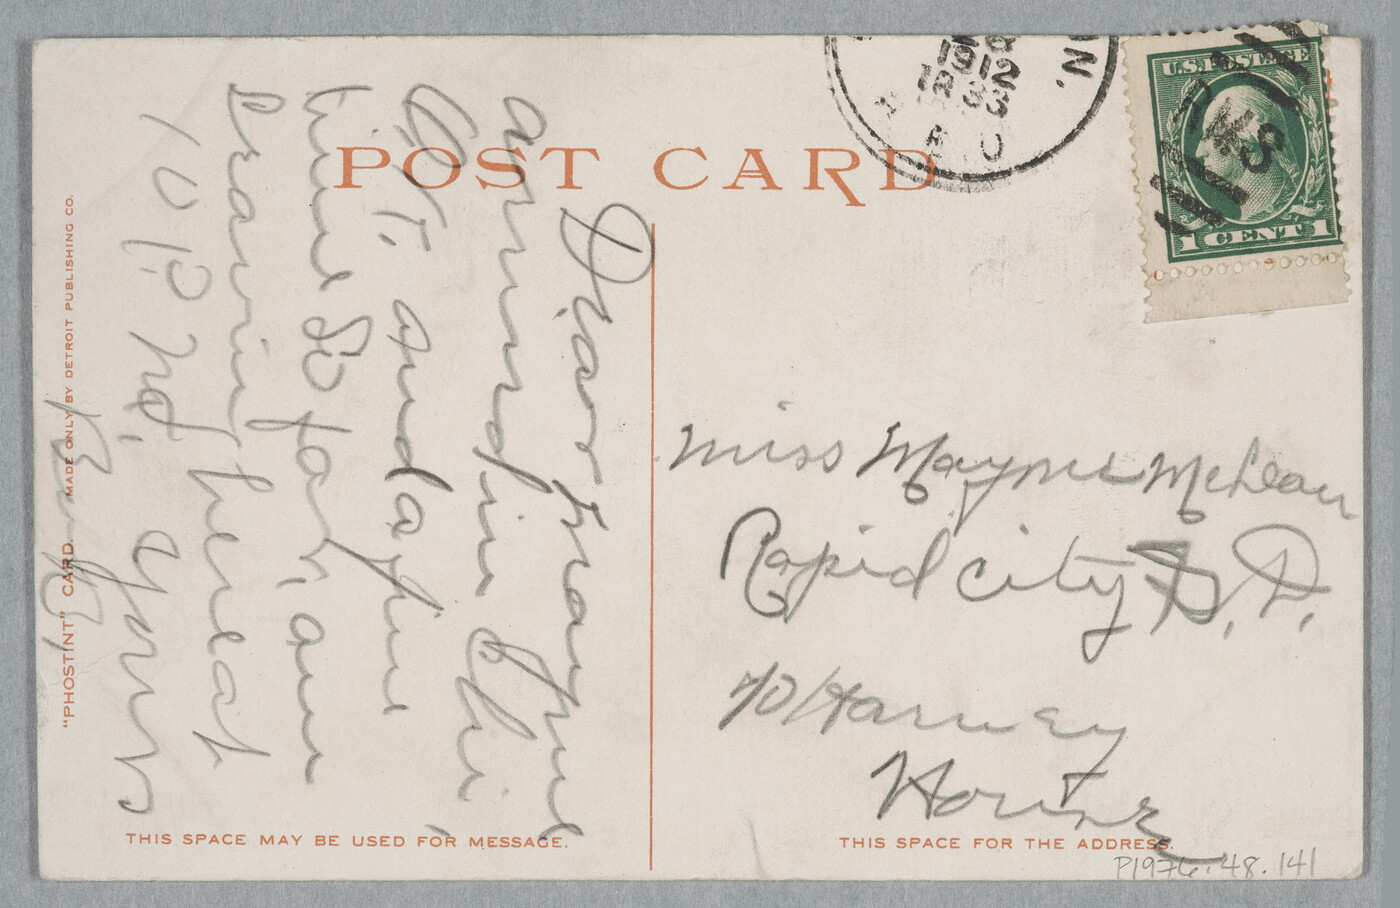 POST CARD
1912
U.S. POSTAGE
1 CENT 1
Dear Mayme
arrived in Chi,
O.K. and a fine
time so far, am
leaving here at
10 P. M. yours
"PHOSTINT" CARD. MADE ONLY BY DETROIT PUBLISHING CO.
THIS SPACE MAY BE USED FOR MESSAGE.
Miss Mayme McLean
Rapid City S. D.
℅ Harney
House
THIS SPACE FOR THE ADDRESS.
P1976.48.141